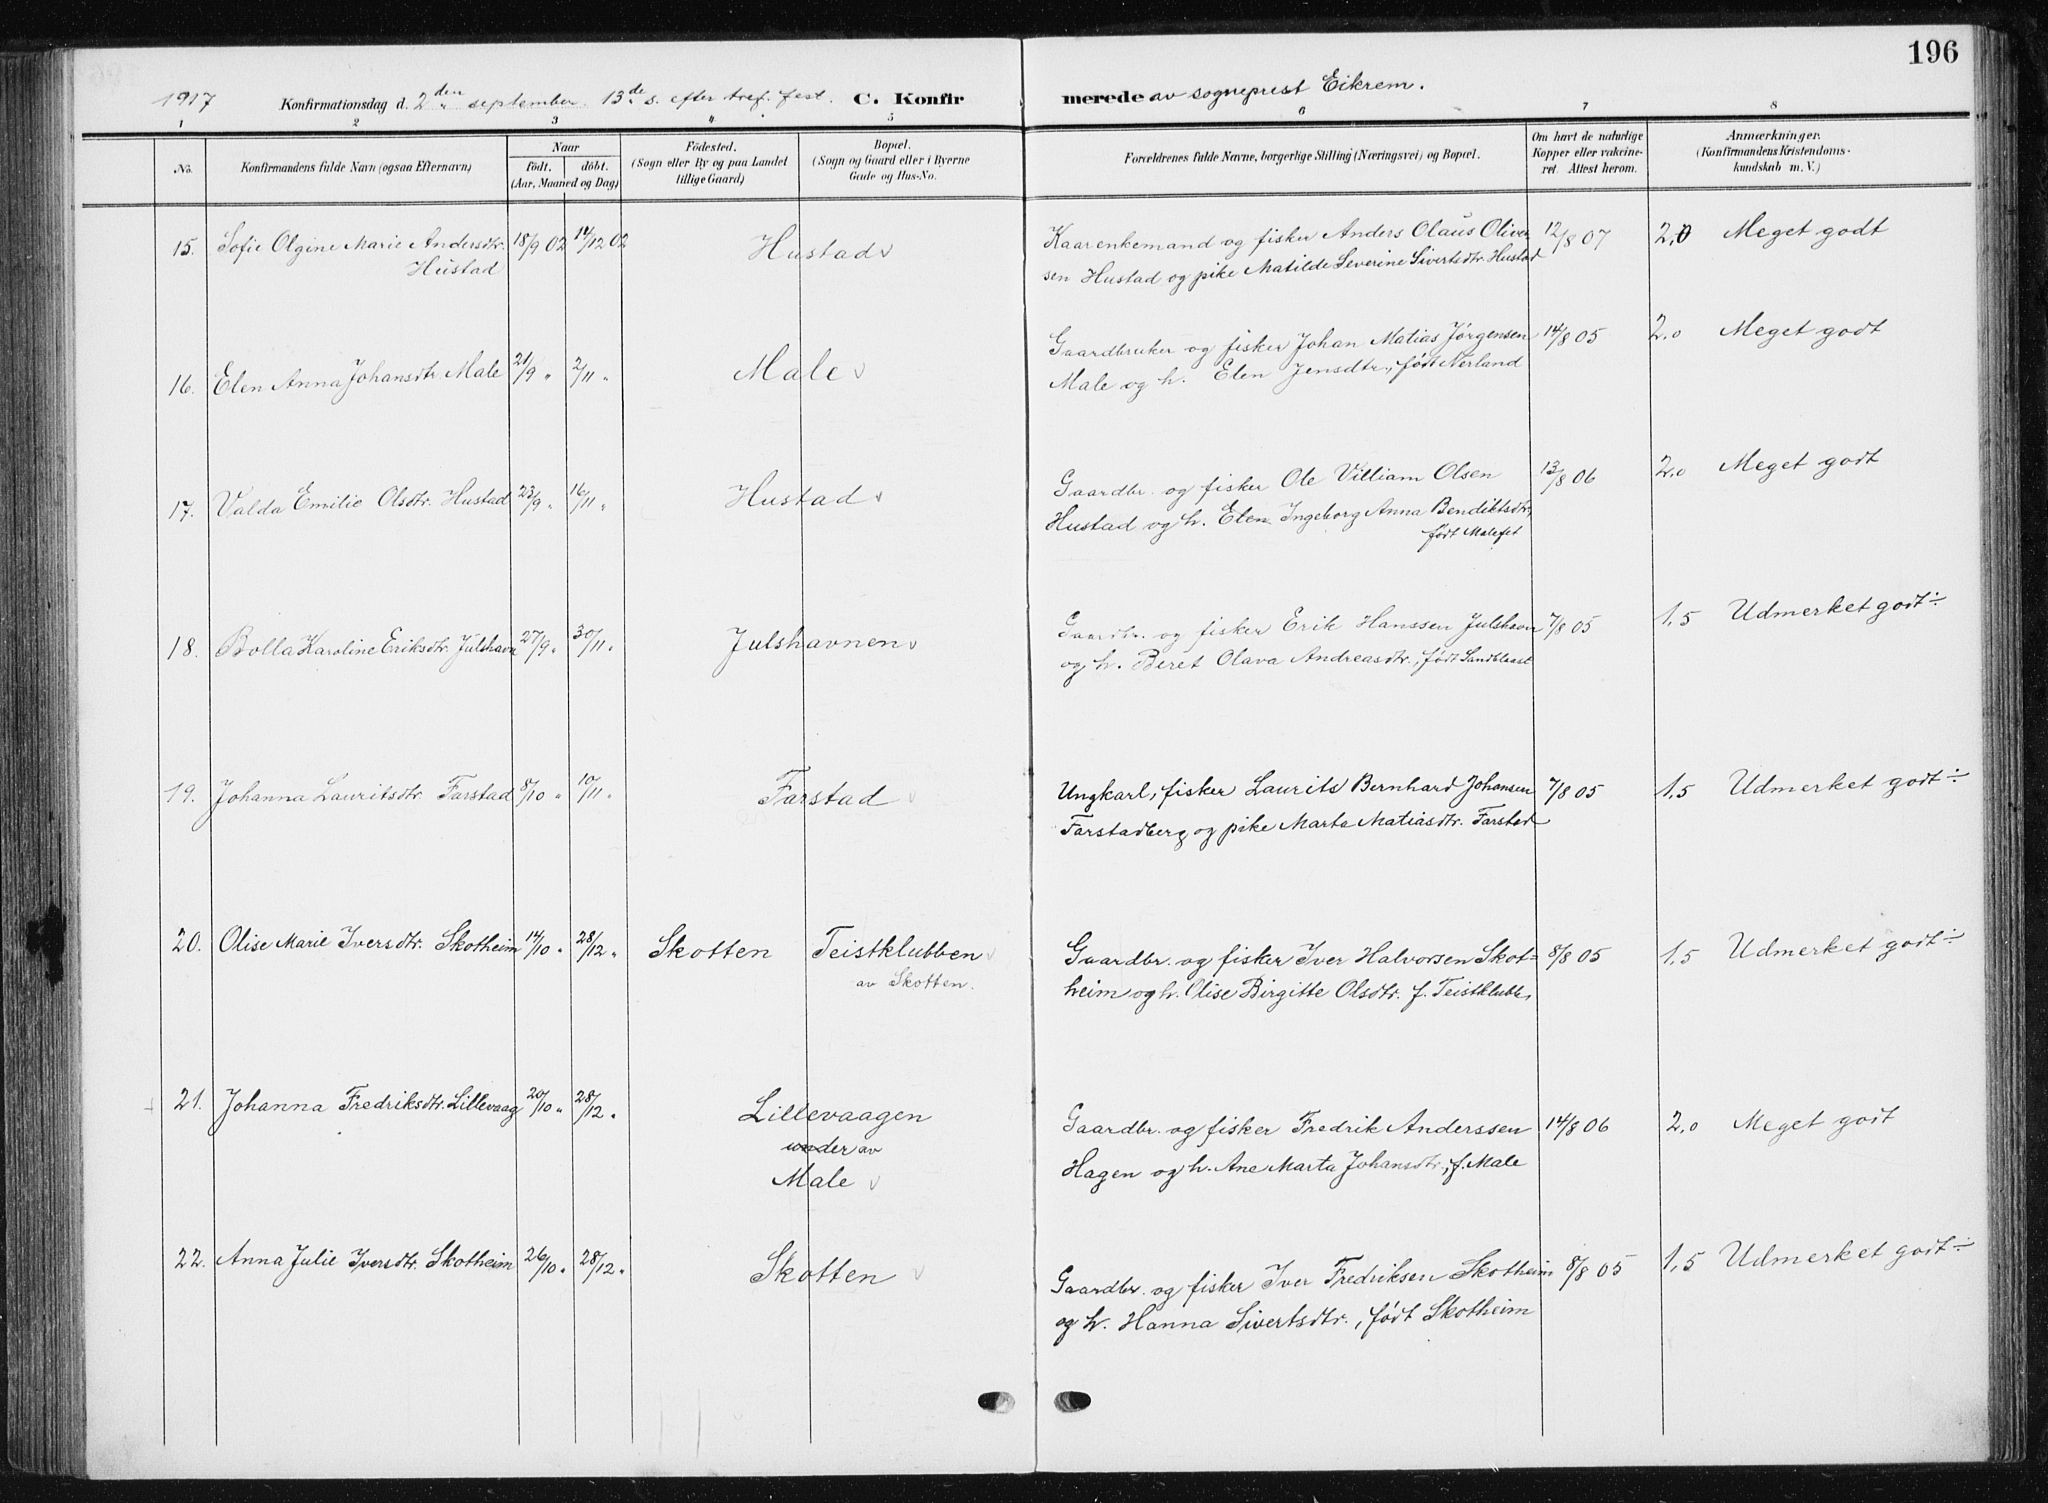 196
1917 Konfirmationsdag d. 2den september. 13de s. efter tref. fest. C. Konfirmerede av sogneprest Eikrem.
1 2 3 4 5 6 7 8
No. Konfirmandens fulde Navn (ogsaa Efternavn) Naar födt. döbt. (Aar, Maaned og Dag) Födested. (Sogn eller By og paa Landet tillige Gaard) Bopæl. (Sogn og Gaard eller i Byerne Gade og Hus-No. Forældrenes fulde Navne, borgerlige Stilling (Næringsvei) og Bopæl. Om havt de naturlige Kopper eller vakcineret. Attest herom. Anmærkninger. (Konfirmandens Kristendomskundskab m. V.)
15. Sofie Olgine Marie Andersdtr. 18/9 02 14/12 02 Hustad v Kaarenkemand og fisker Anders Olaus Oliver 12/8 07 2,0 Meget godt
Hustad sen Hustad og pike Matilde Severine Sivertsdtr. Hustad
16. Elen Anna Johansdtr Male 21/9 " 2/11 " Male v Gaardbruker og fisker Johan Matias Jørgensen 14/8 05 2,0 Meget godt
Male og h. Elen Jensdtr., født Nerland
17. Valda Emilie Olsdtr. Hustad 23/9 " 16/11 " Hustad v Gaardbr. og fisker Ole Villiam Olsen 13/8 06 2,0 Meget godt
Hustad og h. Elen Ingeborg Anna Bendiktsdtr,
født Malefet
18. Bolla Karoline Eriksdtr. Julshavn 27/9 " 30/11 " Julshavnen v Gaardbr. og fisker Erik Hanssen Julshavn 7/8 05 1,5 Udmerket godt ÷
og h. Beret Olava Andreasdtr., født Sandblaast
19. Johanna Lauritsdtr. Farstad 8/10 " 10/11 " Farstad v Ungkarl, fisker Laurits Bernhard Johansen 7/8 05 1,5 Udmerket godt ÷
Farstadberg og pike Marte Matiasdtr. Farstad
20. Olise Marie Iversdtr. Skotheim 14/10 " 28/12 " Skotten Teistklubben v Gaardbr. og fisker Iver Halvorsen Skot= 8/8 05 1,5 Udmerket godt ÷
av Skotten. heim og h. Olise Birgitte Olsdtr. f. Teistklubb,
21. Johanna Fredriksdtr. Lillevaag 20/10 " 28/12 " Lillevaagen Gaardbr. og fisker Fredrik Anderssen 14/8 06 2,0 Meget godt
under av Hagen og h. Ane Marta Johansdtr., f. Male
Male v
22. Anna Julie Iversdtr. Skotheim 26/10 " 28/12 " Skotten v Gaardbr. og fisker Iver Fredriksen Skotheim 8/8 05 1,5 Udmerket godt ÷
og h. Hanna Sivertsdtr., født Skotheim